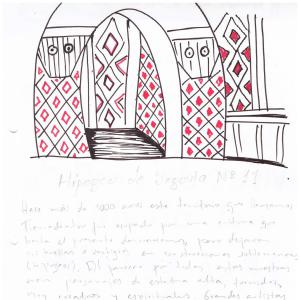 Hipogeo de Segovia Nº 11
Hace más de 1000 años este territorio que llamamos
Tierradentro fue ocupado por una cultura que
hasta el presente desconocemos, pero dejaron
sus huellas o vestigios en construcciones subterraneas
(hipogeos). Al parecer por todas estas muestras
eran personajes de estatura alta, fornidos
muy creativos y espirituales. Grandes artistas